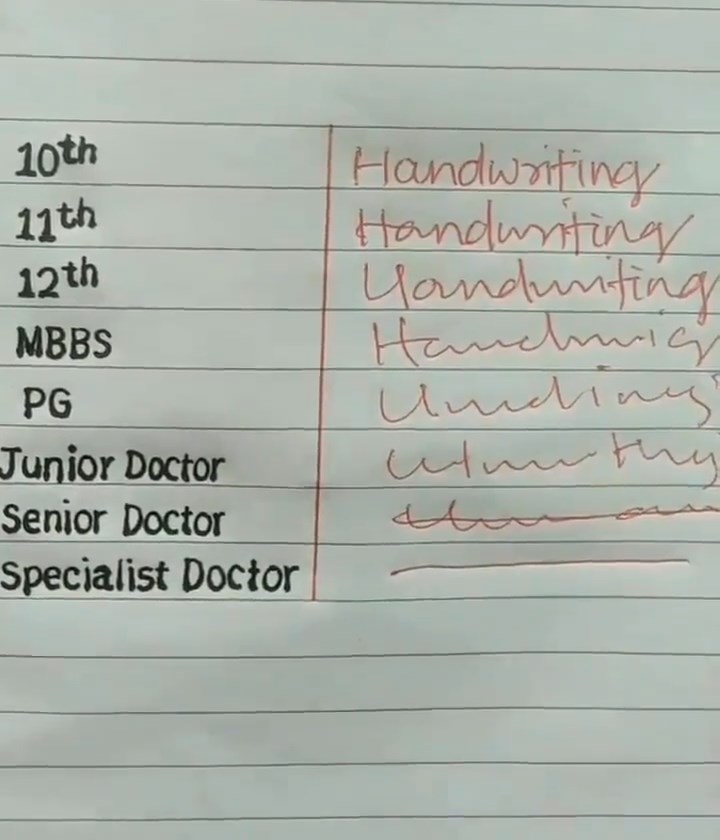 10th Handwriting
11th Handwriting
12th Handwriting
MBBS
PG
Junior Doctor
Senior Doctor
Specialist Doctor